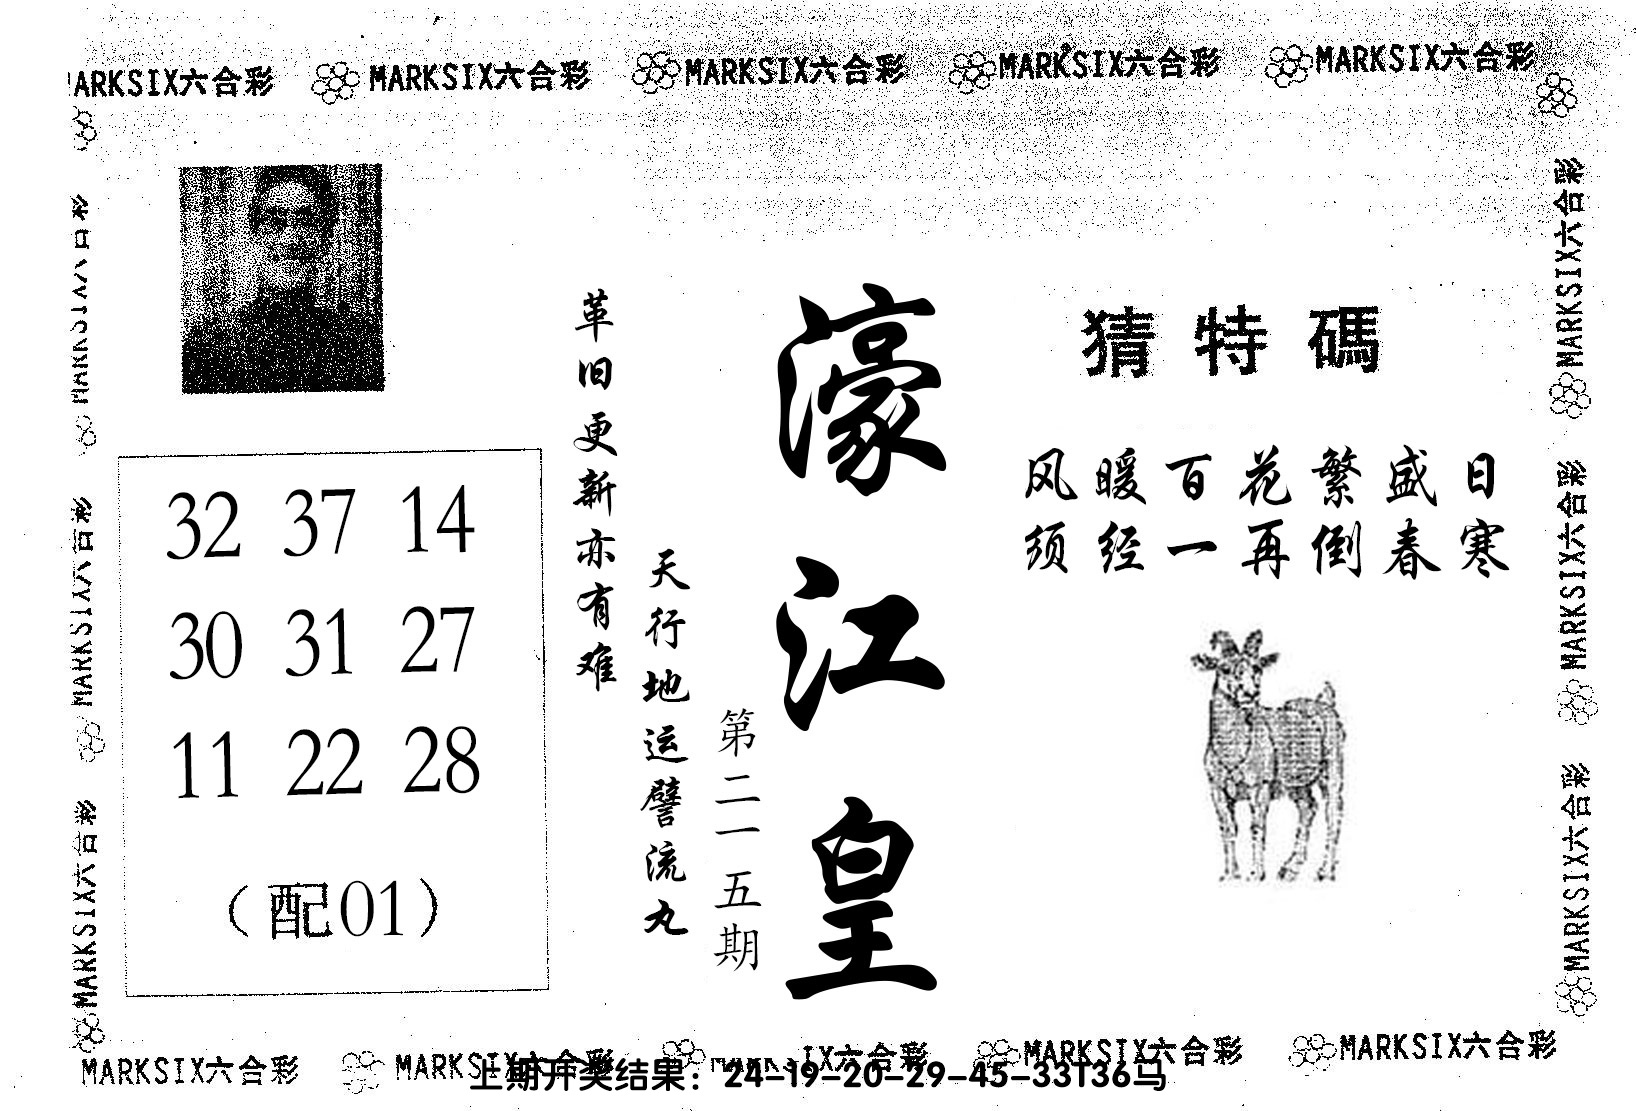 MARKSIX六合彩 MARKSIX六合彩 MARKSIX六合彩 MARKSIX六合彩 MARKSIX六合彩
猜特碼
风暖百花繁盛日
须经一再倒春寒
濠江皇
第二一五期
天行地运譬流丸
革旧更新亦有难
32 37 14
30 31 27
11 22 28
（配01）
MARKSIX六合彩
MARKSIX六合彩
MARKSIX六合彩
MARKSIX六合彩
MARKSIX六合彩
MARKSIX六合彩
MARKSIX六合彩 MARKSIX六合彩 MARKSIX六合彩 MARKSIX六合彩 MARKSIX六合彩
上期开奖结果：24-19-20-29-45-33T36马